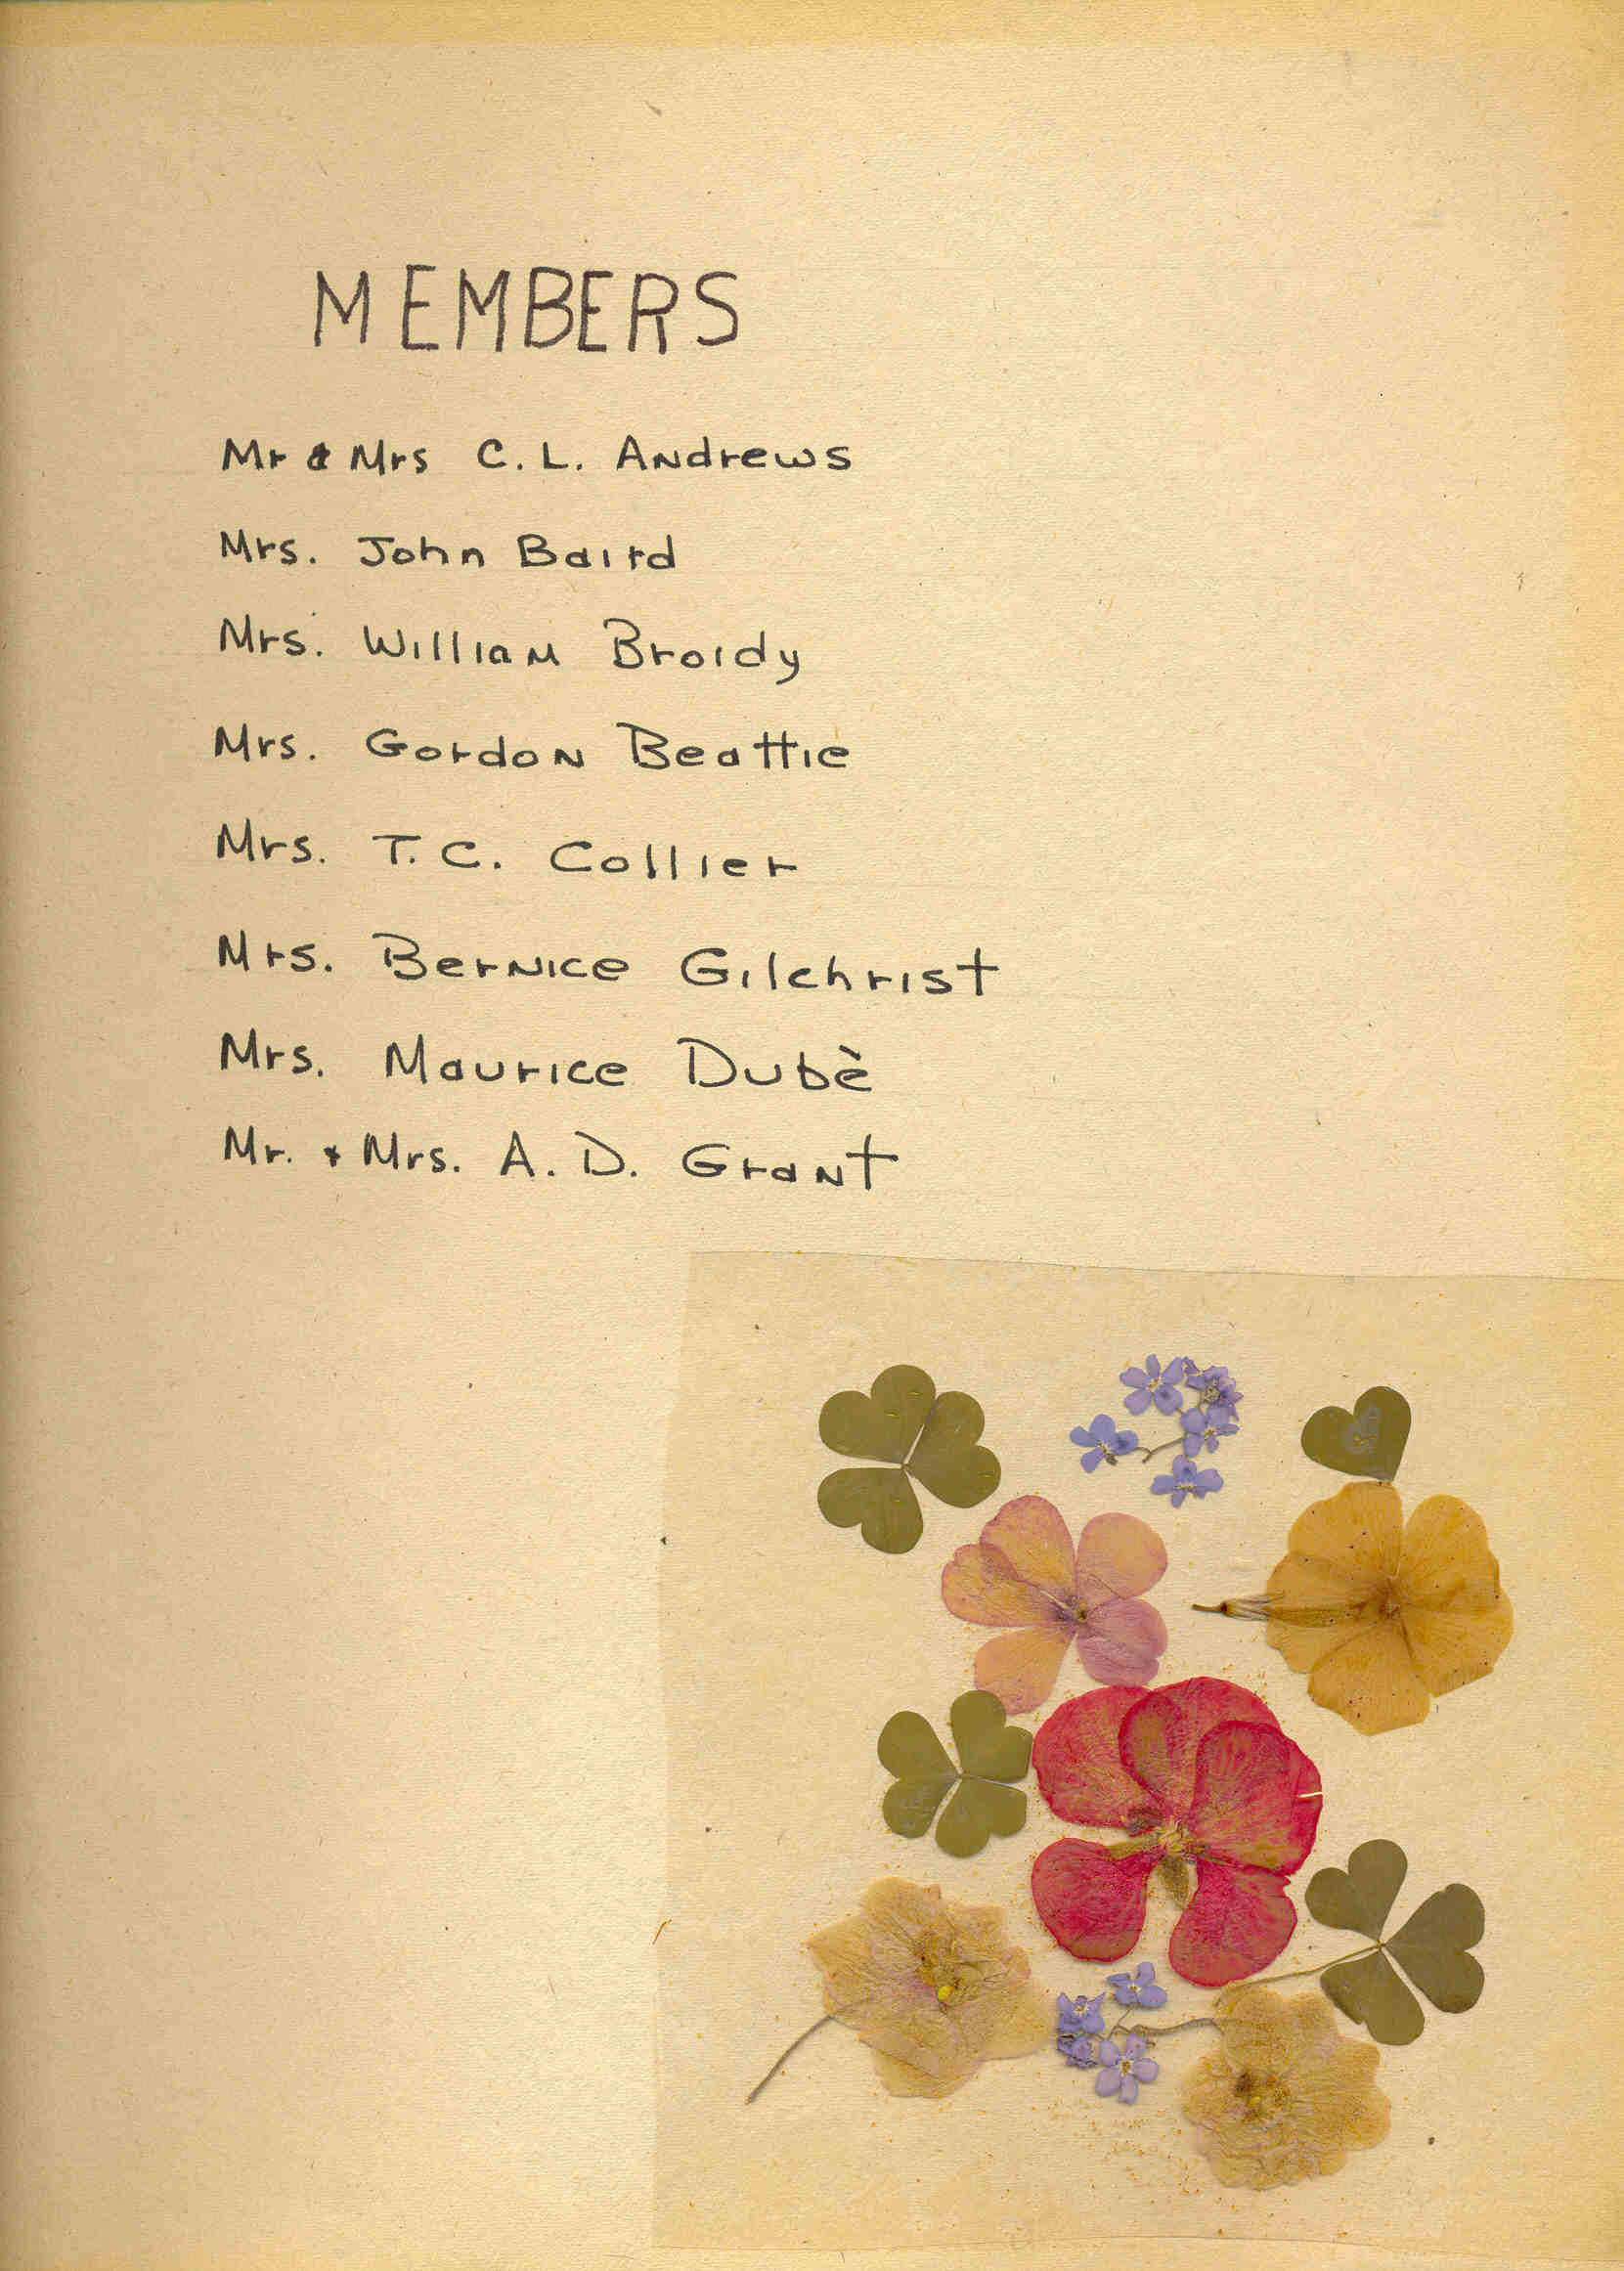 MEMBERS
Mr & Mrs C. L. Andrews
Mrs. John Baird
Mrs. William Broidy
Mrs. Gordon Beattie
Mrs. T. C. Collier
Mrs. Bernice Gilchrist
Mrs. Maurice Dubè
Mr. & Mrs. A. D. Grant